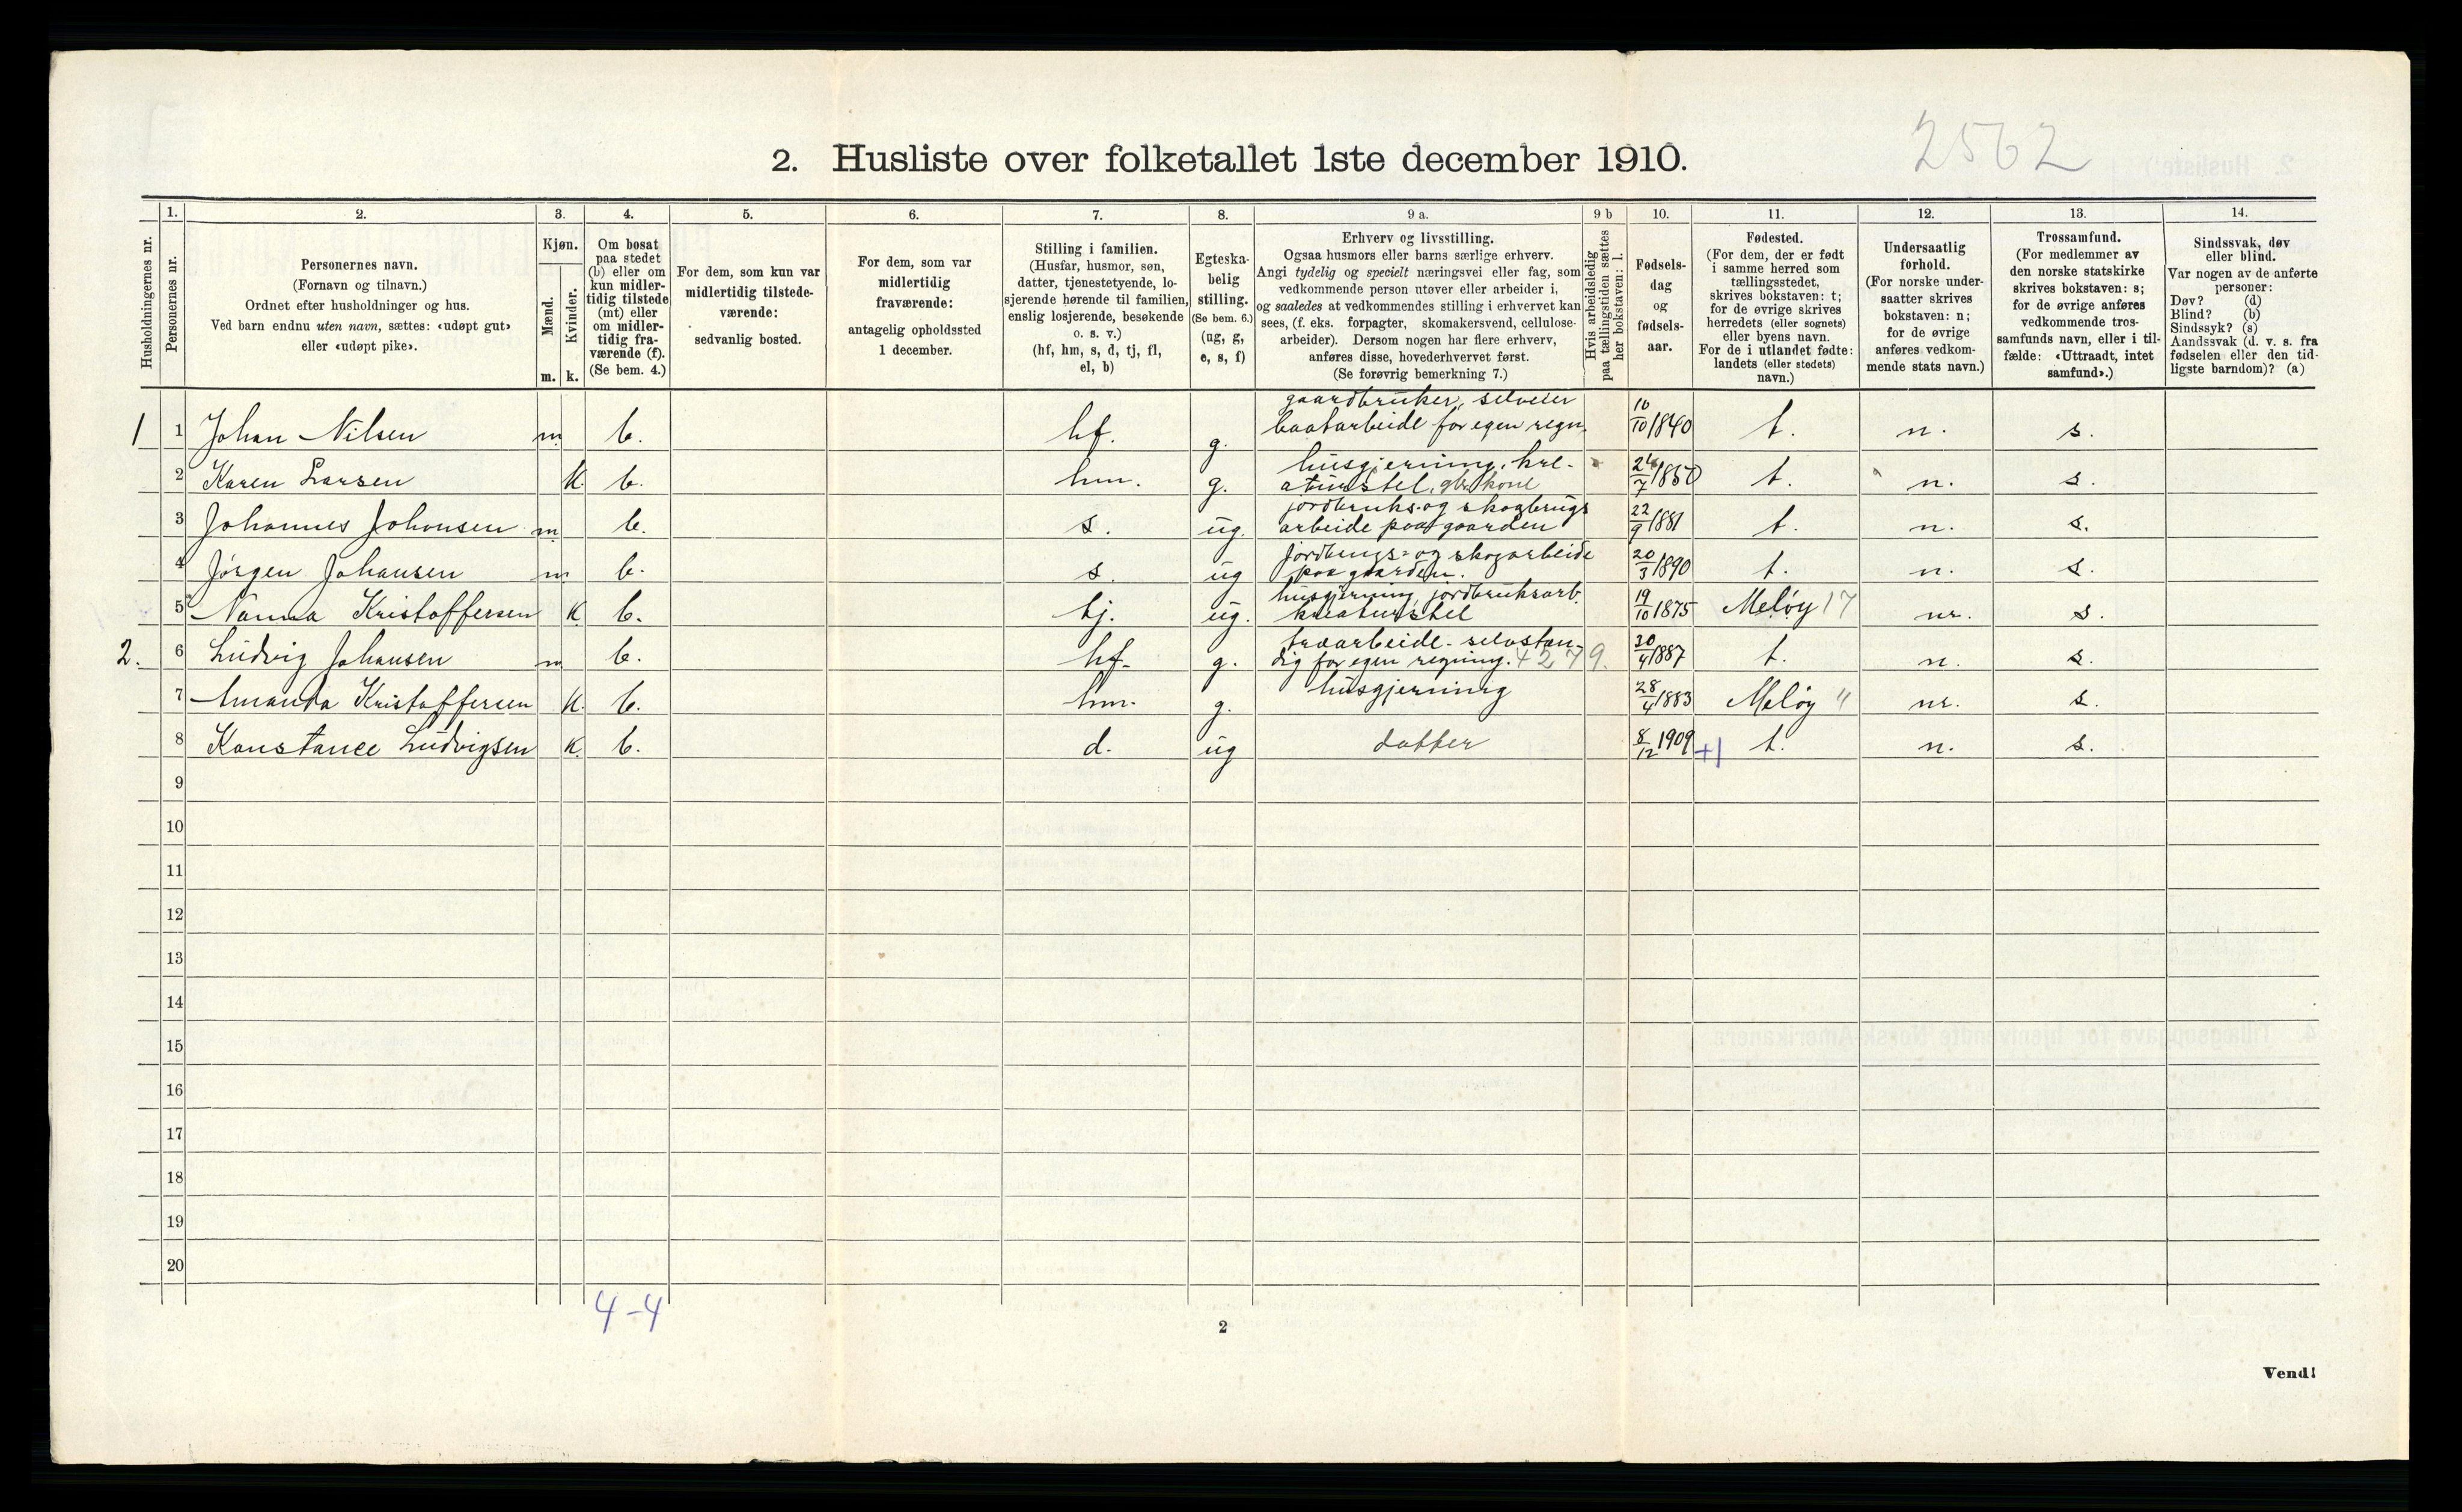 2562
2. Husliste over folketallet 1ste december 1910.
Husholdningernes nr.
1.
Personernes nr.
2.
Personernes navn.
(Fornavn og tilnavn.)
Ordnet efter husholdninger og hus.
Ved barn endnu uten navn, sættes: «udøpt gut»
eller «udøpt pike».
3.
Kjøn.
Mænd.
Kvinder.
m. k.
4.
Om bosat
paa stedet
(b) eller om
kun midler-
tidig tilstede
(mt) eller
om midler-
tidig fra-
værende (f).
(Se bem. 4.)
5.
For dem, som kun var
midlertidig tilstede-
værende:
sedvanlig bosted.
6.
For dem, som var
midlertidig
fraværende:
antagelig opholdssted
1 december.
7.
Stilling i familien.
(Husfar, husmor, søn,
datter, tjenestetyende, lo-
sjerende hørende til familien,
enslig losjerende, besøkende
o. s. v.)
(hf, hm, s, d, tj, fl,
el, b)
8.
Egteska-
belig
stilling.
(Se bem. 6.)
(ug, g,
e, s, f)
9 a.
Erhverv og livsstilling.
Ogsaa husmors eller barns særlige erhverv.
Angi tydelig og specielt næringsvei eller fag, som
vedkommende person utøver eller arbeider i,
og saaledes at vedkommendes stilling i erhvervet kan
sees, (f. eks. forpagter, skomakersvend, cellulose-
arbeider). Dersom nogen har flere erhverv,
anføres disse, hovederhvervet først.
(Se forøvrig bemerkning 7.)
9 b
Hvis arbeidsledig
paa tællingstiden sættes
her bokstaven: l.
10.
Fødsels-
dag
og
fødsels-
aar.
11.
Fødested.
(For dem, der er født
i samme herred som
tællingsstedet,
skrives bokstaven: t;
for de øvrige skrives
herredets (eller sognets)
eller byens navn.
For de i utlandet fødte:
landets (eller stedets)
navn.)
12.
Undersaatlig
forhold.
(For norske under-
saatter skrives
bokstaven: n;
for de øvrige
anføres vedkom-
mende stats navn.)
13.
Trossamfund.
(For medlemmer av
den norske statskirke
skrives bokstaven: s;
for de øvrige anføres
vedkommende tros-
samfunds navn, eller i til-
fælde: «Uttraadt, intet
samfund».)
14.
Sindssvak, døv
eller blind.
Var nogen av de anførte
personer:
Døv? (d)
Blind? (b)
Sindssyk? (s)
Aandssvak (d. v. s. fra
fødselen eller den tid-
ligste barndom)? (a)
1 1 Johan Nilsen m b. hf. g. gaardbruker, selveier
baatarbeide for egen regn. 10/10 1840 t. n. s.
2 Karen Larsen k. b. hm. g. husgjerning, kre-
aturstel, gbr. kone 24/7 1850 t. n. s.
3 Johannes Johansen m b. s. ug. jordbruks- og skogbrugs
arbeide paa gaarden 22/9 1881 t. n. s.
4 Jørgen Johansen m b. s. ug jordbrugs- og skogarbeide
paa gaarden. 20/3 1890 t. n. s.
5 Nanna Kristoffersen k b. tj. ug. husgjerning, jordbruksarb.
kreaturstel 19/10 1875 Meløy 17 nr. s.
2. 6 Ludvig Johansen m b. hf. g. træarbeide - selvstæn-
dig for egen regning. 4279. 30/4 1887 t. n. s.
7 Amanda Kristoffersen k. b. hm. g. husgjerning 28/4 1883 Meløy " nr. s.
8 Konstance Ludvigsen k. b. d. ug datter 8/12 1909 +1 t. n. s.
9
10
11
12
13
14
15
16
17
18
19
20
4-4
2
Vend!